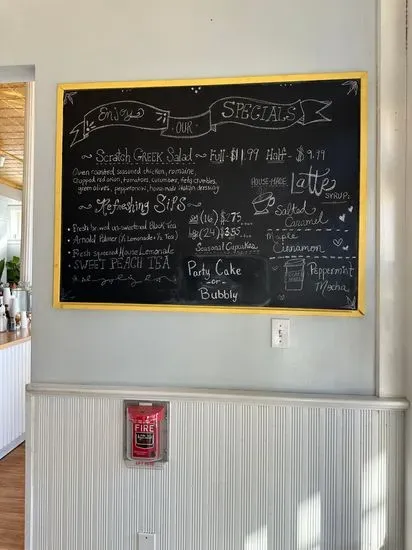 Enjoy OUR SPECIALS
~ Scratch GREEK Salad ~ Full- $11.99 Half- $9.99
Oven roasted seasoned chicken, romaine,
chopped red onion, tomatoes, cucumbers, feta crumbles,
green olives, pepperoncini, house-made italian dressing
~Refreshing Sips~
(16) $2.75
(24) $3.55
• Fresh brewed un-sweetened Black Tea
• Arnold Palmer (½ Lemonade + ½ Tea)
• Fresh squeezed House Lemonade
• SWEET PEACH TEA
Seasonal Cupcakes
Party Cake
-or-
Bubbly
HOUSE-MADE
Latte
SYRUPS
Salted
Caramel
Maple
Cinnamon
Peppermint
Mocha
FIRE